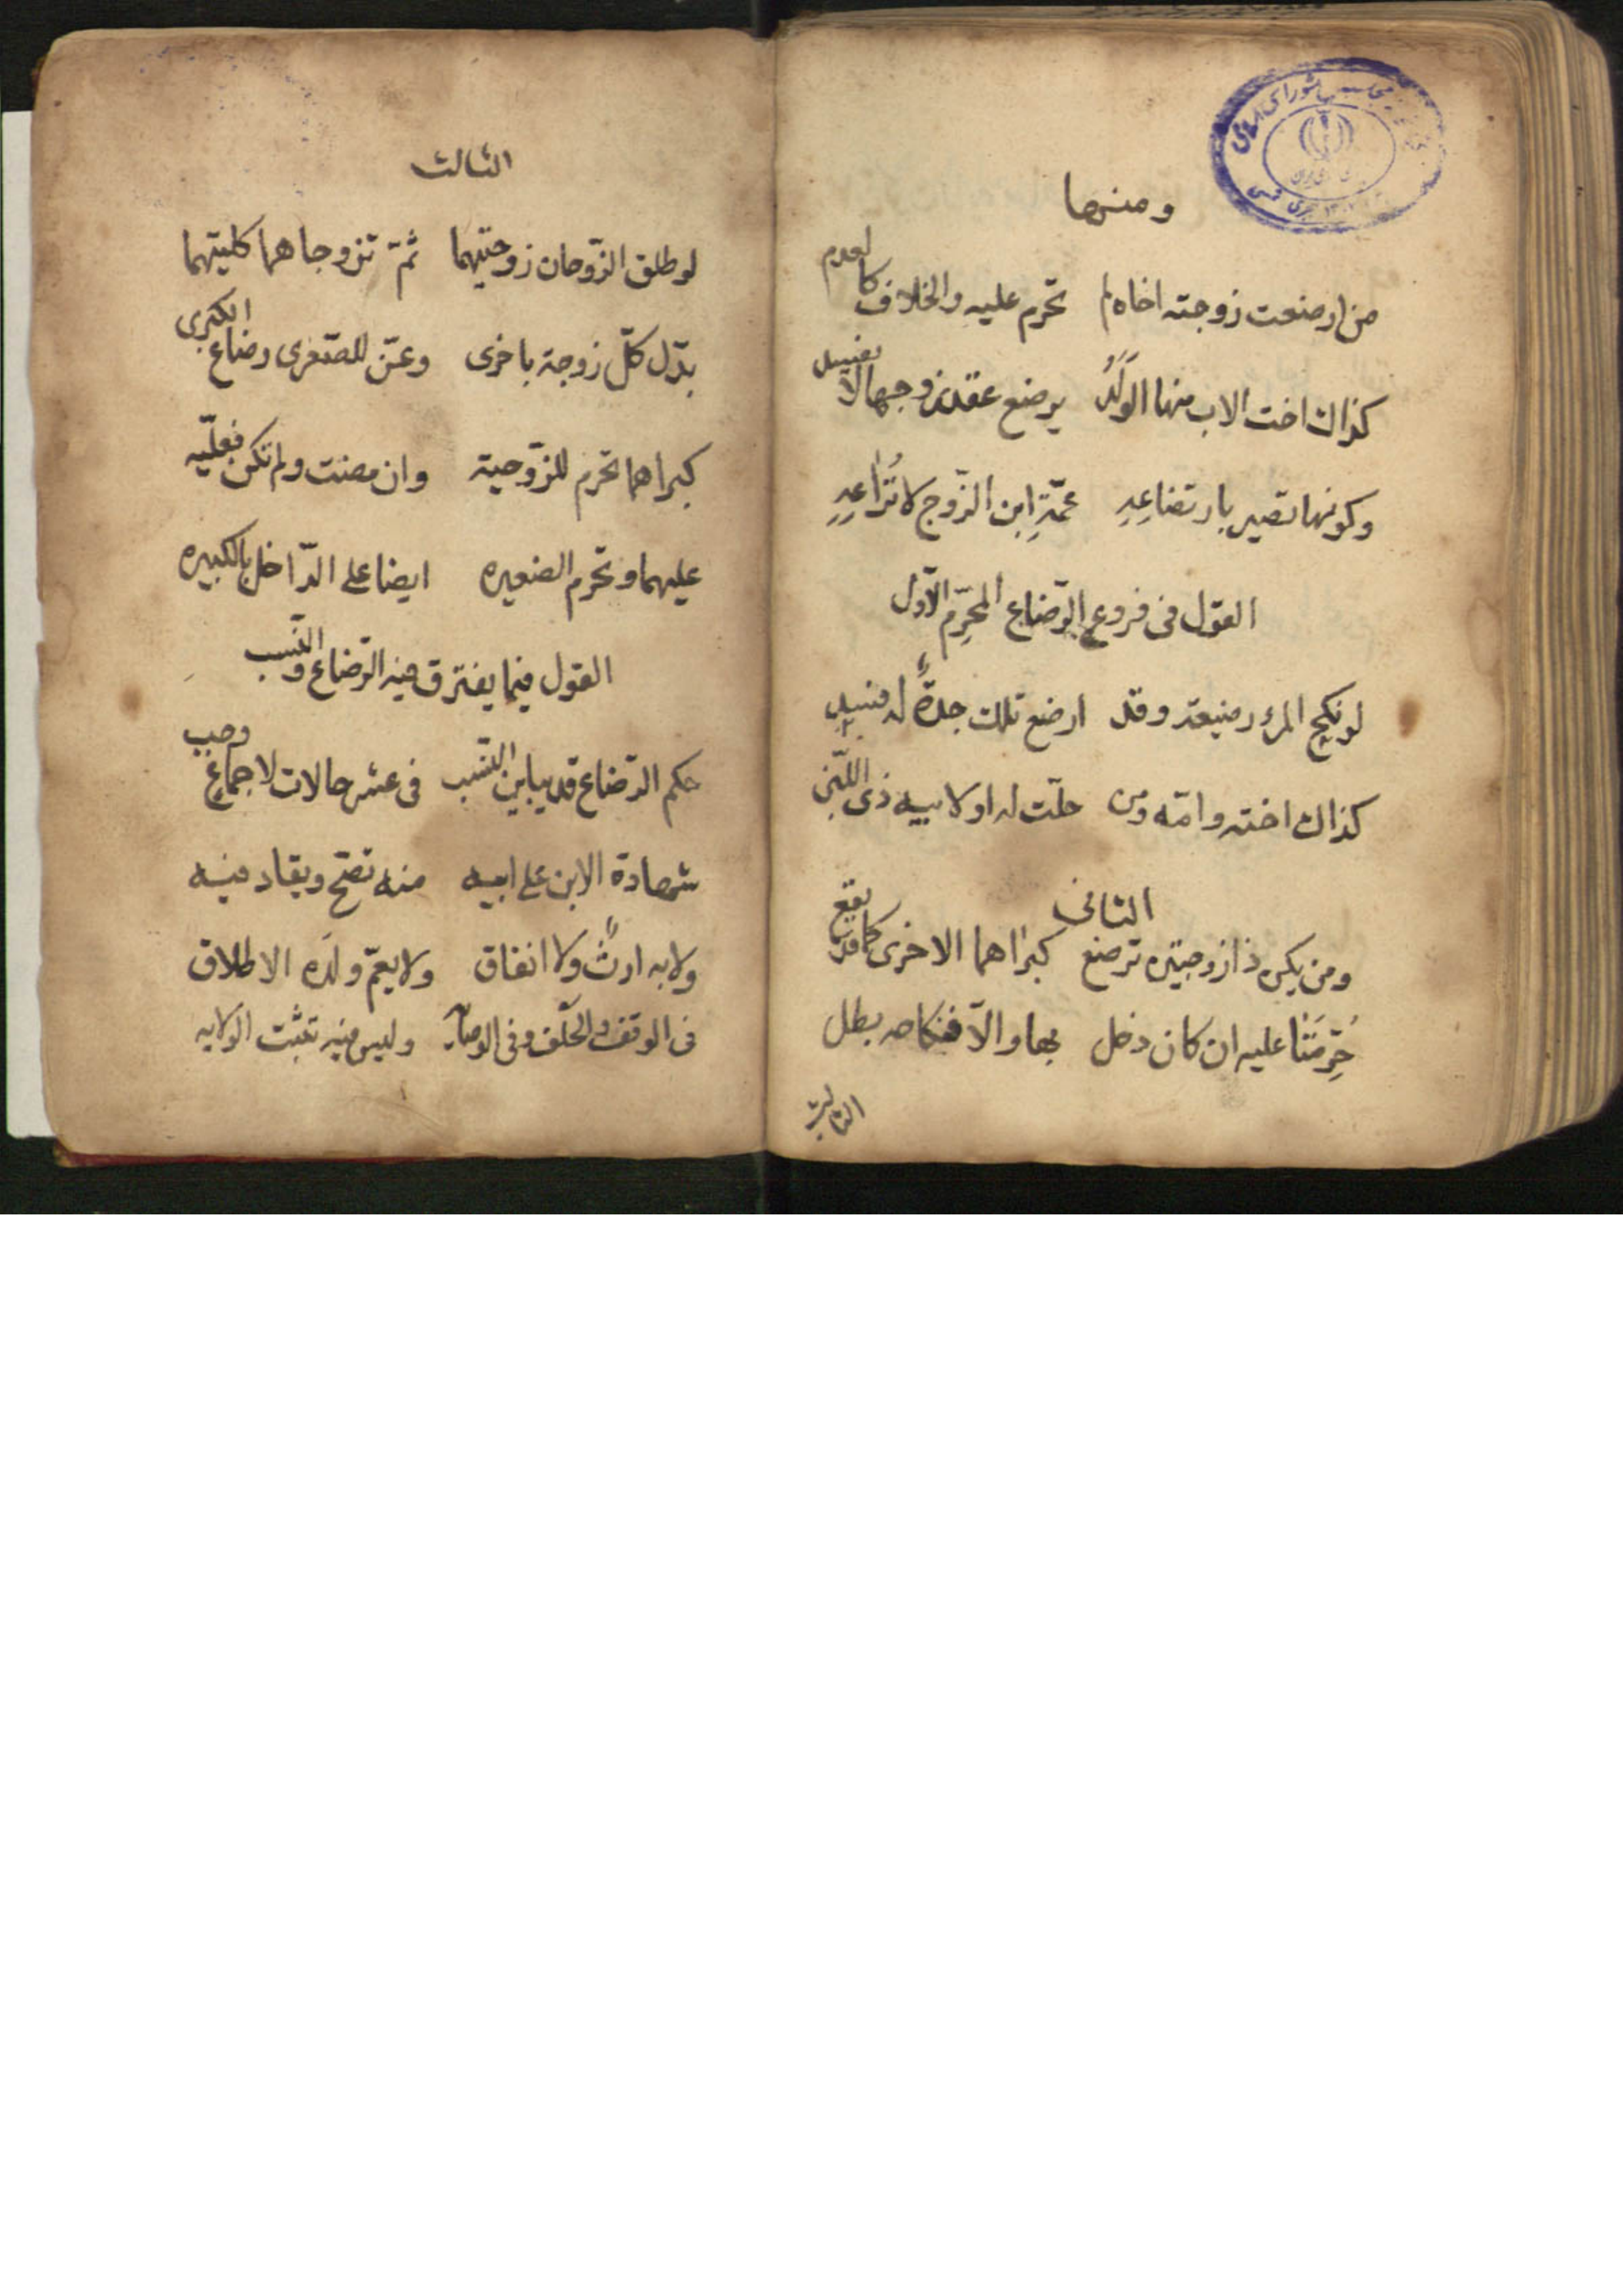 ومنها
من ارضعت زوجته اخاه لم تحرم عليه والخلاف كالعدم
كذاك اخت الاب منها الولد يرضع عقد زوجها لا يفسد
وكونها تصير بارتضاعه عمّة ابن الزّوج لا تراعه
القول فى فروع الرّضاع المحرّم الاوّل
لو نكح المرء رضيعة وقد ارضع تلك جدّة له
كذاك اخته وامّه ومن حلّت له اولا بيه ذى اللّبن
الثانى
ومن يكن ذا زوجتين ترضع كبراهما الاخرى كما قد يقع
حرّمتا عليه ان كان دخل بها والّا فنكاحه بطل
الثالث
الثالث
لو طلق الزّوجان زوجتيهما ثمّ تزوجاهما كليتهما
بدّل كلّ زوجة باخرى وعنّ للصّغرى رضاع الكبرى
كبراهما تحرم للزّوجية وان مضت ولم تكن فعليّه
عليهما وتحرم الصغيره ايضا على الدّاخل بالكبيره
القول فيما يفترق فيه الرّضاع والنّسب
حكم الرّضاع قد يباين النّسب فى عشر حالات لاجماع وجب
شهادة الابن على ابيه منه تصحّ ويقاد فيه
ولا به ارث ولا انفاق ولا يعمّ ولده الاطلاق
فى الوقف والحلف وفى الوصايه وليس فيه تثبت الولايه